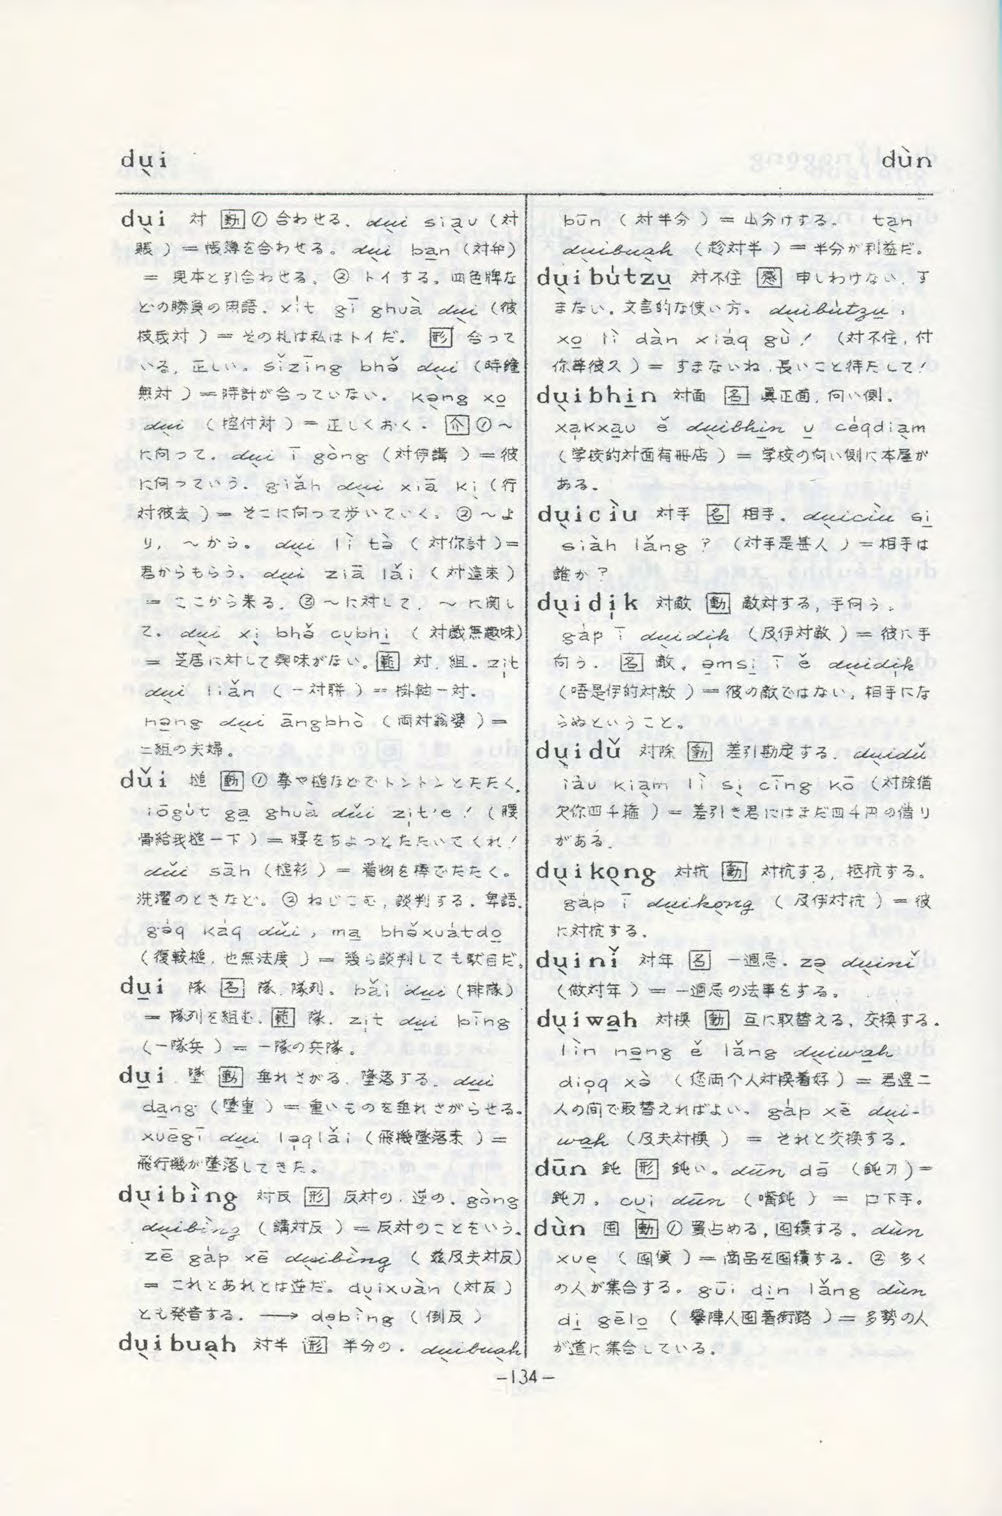 dụi
dùn
dụi 対 動 ① 合わせる. dụi siạu (対
賬) = 帳簿を合わせる。 dụi ban (対弁)
= 見本と引合わせる. ② トイする。四色牌な
どの勝負の用語. xi̍t gī ghuà dụi (彼
枝我対) = その札は私はトイだ。 形 合って
いる, 正しい。 sǐzīng bhǒ dụi (時鐘
無対) = 時計が合っていない。 kạng xo̱
dụi (控付対) = 正しくおく。 介 ① ~
に向って。 dụi ī gòng (対伊講) = 彼
に向っていう. giǎh dụi xiā kị (行
対彼去) = そこに向って歩いていく。 ② ~よ
り, ~から。 dụi lì tò (対你討) =
君からもらう。 dụi ziā lǎi (対這来)
= ここから来る. ③ ~に対して, ~に関し
て。 dụi xị bhǒ cụbhi̱ (対戯無趣味)
= 芝居に対して興味がない。 範 対, 組. zi̍t
dụi liǎn (一対聯) = 掛軸一対.
nn̄g dụi āngbhò (両対翁婆) =
二組の夫婦。
dǔi 槌 動 ① 拳や槌などでトントンとたたく.
iōgut ga̱ ghuà dǔi zi̍t'e! (腰
骨給我槌一下) = 腰をちょっとたたいてくれ!
dǔi sāh (槌衫) = 着物を棒でたたく。
洗濯のときなど。 ② ねじこむ, 談判する. 卑語.
gǎq kǎq dǔi, ma̱ bhǒxuatdo̱
(復較槌, 也無法度) = 幾ら談判しても駄目だ.
du̱i 隊 名 隊. 隊列。 bǎi du̱i (排隊)
= 隊列を組む. 範 隊. zi̍t du̱i bīng
(一隊兵) = 一隊の兵隊。
du̱i 墜 動 垂れさがる. 墜落する. du̱i
da̱ng (墜重) = 重いものを垂れさがらせる.
xuēgī du̱i lo̍qlǎi (飛機墜落来) =
飛行機が墜落してきた。
dụibìng 対反 形 反対の. 逆の. gòng
dụibìng (講対反) = 反対のことをいう.
zē gap xē dụibìng (茲及夫対反)
= これとあれとは逆だ。 dụixuàn (対反)
とも発音する. ⟶ dọbìng (倒反)
dụibuạh 対半 形 半分の. dụibuạh
būn (対半分) = 山分けする. tạn
dụibuạh (趁対半) = 半分が利益だ。
dụibútzu̱ 対不住 感 申しわけない, す
まない。文言的な使い方。 dụibútzu̱,
xo̱ lì dàn xiáq gù! (対不住, 付
你等彼久) = すまないね, 長いこと待たして!
dụibhi̱n 対面 名 真正面, 向い側.
xa̍kxạu ě dụibhi̱n u̱ céqdiạm
(学校的対面有冊店) = 学校の向い側に本屋が
ある。
dụicìu 対手 名 相手。 dụicìu si̱
siàh lǎng? (対手是甚人) = 相手は
誰か?
dụidi̍k 対敵 動 敵対する, 手向う。
gap ī dụidi̍k (及伊対敵) = 彼に手
向う. 名 敵. ạmsi̱ ī ě dụidi̍k
(唔是伊的対敵) = 彼の敵ではない, 相手にな
らぬということ。
dụidǔ 対除 動 差引勘定する. dụidǔ
iàu kiạm lì sị cīng kō (対除猶
欠你四千箍) = 差引き君にはまだ四千円の借り
がある.
dụikọng 対抗 動 対抗する, 抵抗する。
gap ī dụikọng (及伊対抗) = 彼
に対抗する.
dụinǐ 対年 名 一週忌. zọ dụinǐ
(做対年) = 一週忌の法事をする。
dụiwa̱h 対換 動 互に取替える, 交換する.
lìn nn̄g ě lǎng dụiwa̱h
dio̍q xò (恁両个人対換着好) = 君達二
人の間で取替えればよい。 gap xē dụi-
wa̱h (及夫対換) = それと交換する。
dūn 鈍 形 鈍い。 dūn dō (鈍刀) =
鈍刀. cụi dūn (嘴鈍) = 口下手.
dùn 囤 動 ① 買占める, 囤積する。 dùn
xuẹ (囤貨) = 商品を囤積する. ② 多く
の人が集合する。 gūi dịn lǎng dùn
di̱ gēlo̱ (擧陣人囤著街路) = 多勢の人
が道に集合している.
-134-